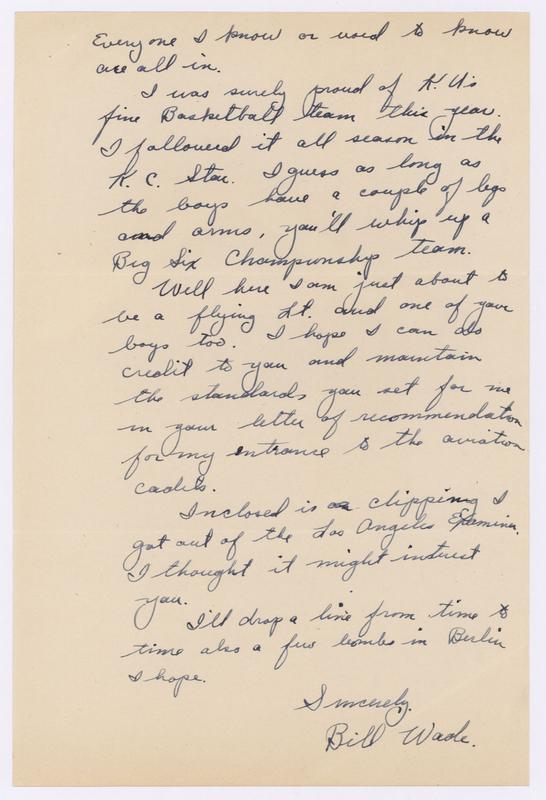 Everyone I know or used to know
are all in.
I was surely proud of K.U.'s
fine Basketball team this year.
I followed it all season in the
K. C. Star. I guess as long as
the boys have a couple of legs
and arms, you'll whip up a
Big Six Championship team.
Well here I am just about to
be a flying Lt. and one of your
boys too. I hope I can do
credit to you and maintain
the standards you set for me
in your letter of recommendation
for my entrance to the aviation
cadets.
Inclosed is a clipping I
got out of the Los Angeles Examiner.
I thought it might interest
you.
I'll drop a line from time to
time also a few bombs in Berlin
I hope.
Sincerely,
Bill Wade.